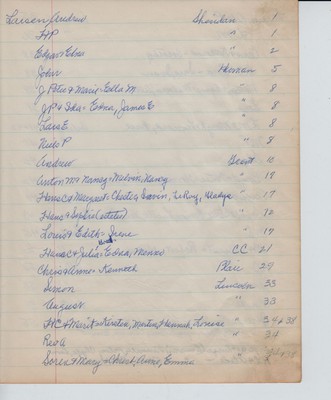 Larsen Andrew Sheridan 1
H P " 2
Edgar & Edna " 2
John Sherman 5
J Peter & Marie - Ella M " 8
J P & Ida - Edna, James E " 8
Lars E " 8
Niels P " 8
Andrew Grant 10
Anton M & Nancy - Malvon, Nancy " 18
Hans C & Margaret - Chester, LeRoy, Gladys " 17
Hans & Sophie " 17
Louis & Edith - Irene " 19
Hans C & Julia - Edna, CC 21
Chris & Anne - Kenneth 29
Simon Lincoln 33
August " 33
H C & Marie - Kirsten, Martin, Hannah, Louise " 34 & 35
Rev A " 34
Soren & Mary - Christ, Anne, Emma "